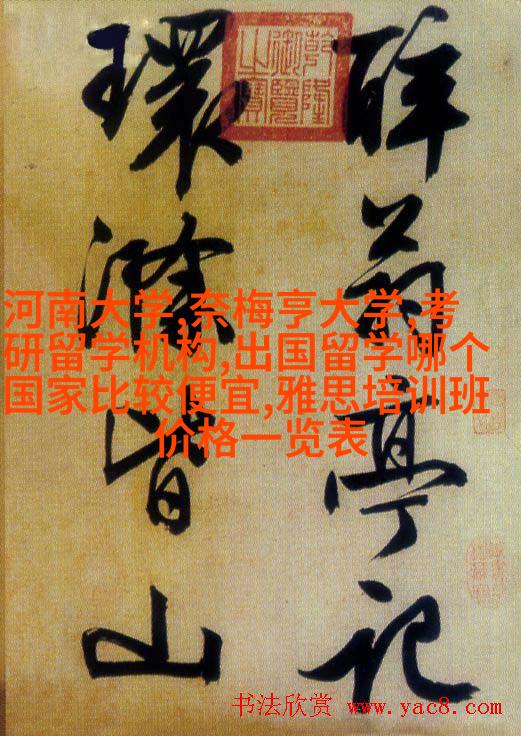 醉翁亭記
環滁皆山
乾隆
御覽
之寶
河南大学,奈梅亨大学,考
研留学机构,出国留学哪个
国家比较便宜,雅思培训班
价格一览表
书法欣赏 www.yac8.com